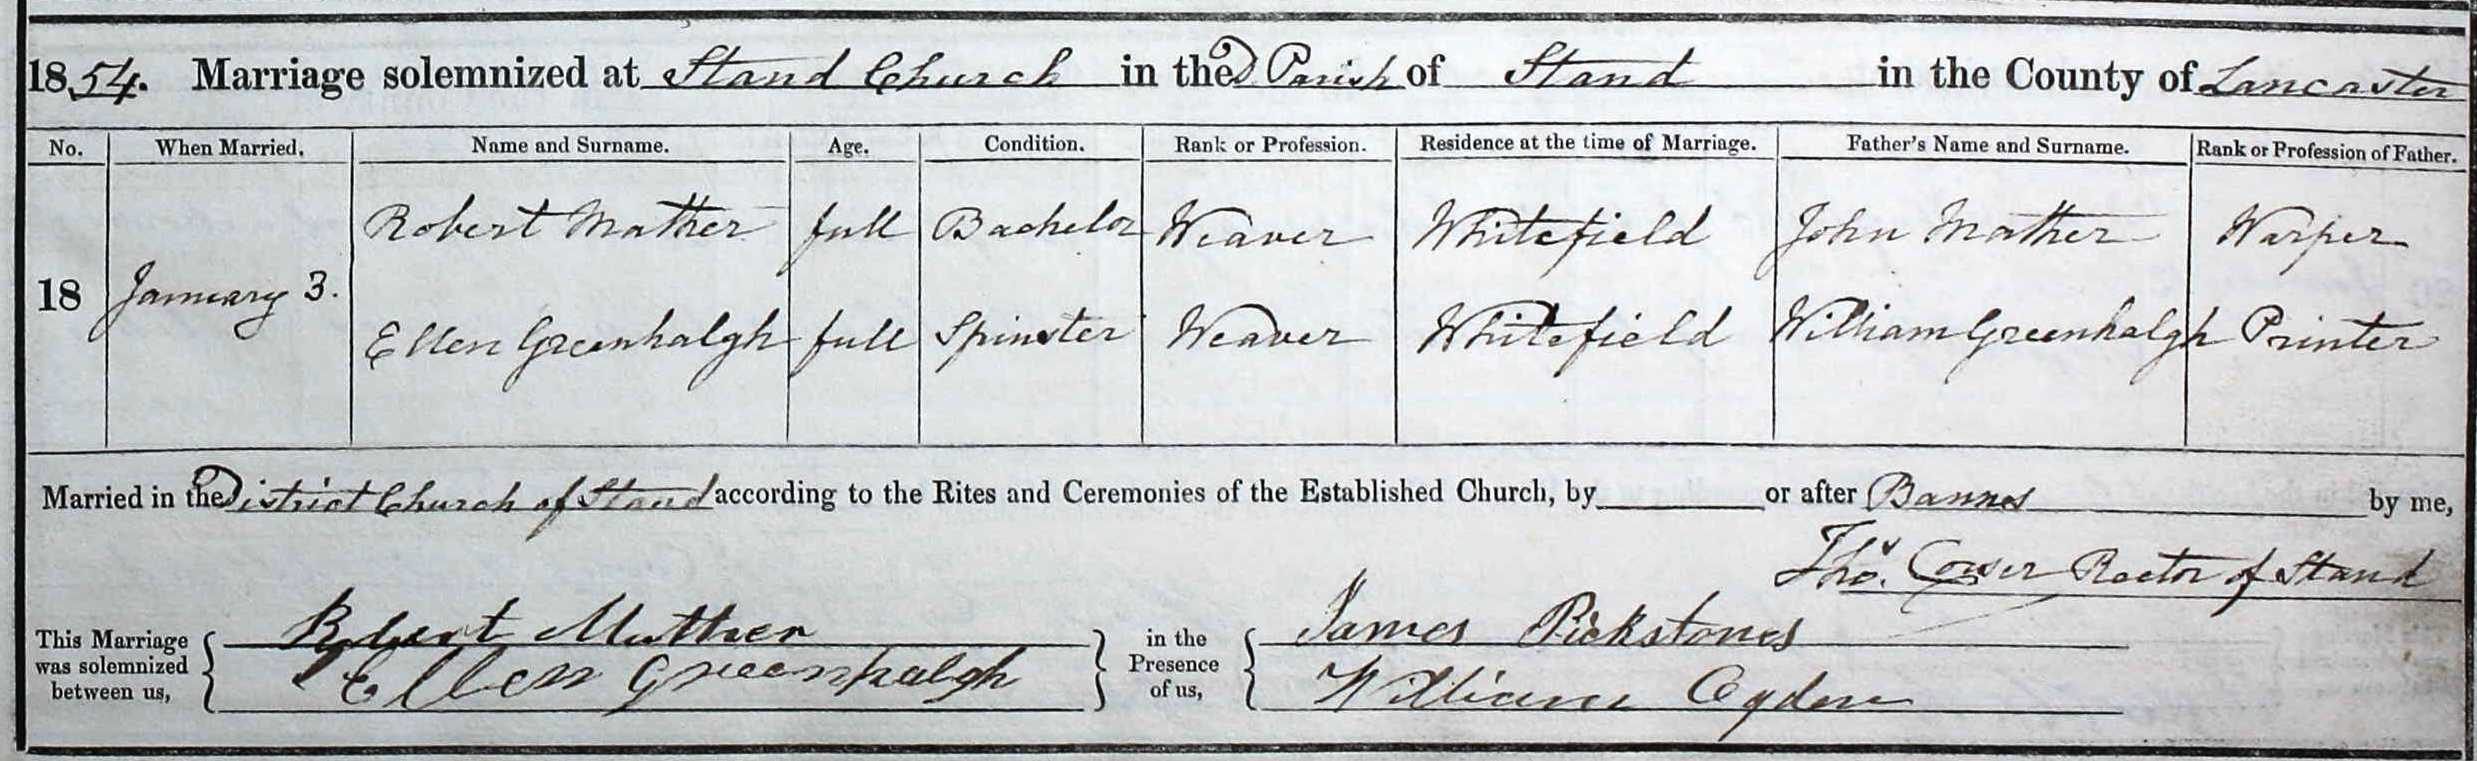 1854. Marriage solemnized at Stand Church in the D Parish of Stand in the County of Lancaster
No. When Married. Name and Surname. Age. Condition. Rank or Profession. Residence at the time of Marriage. Father's Name and Surname. Rank or Profession of Father.
Robert Mather full Bachelor Weaver Whitefield John Mather Warper
18 January 3.
Ellen Greenhalgh full Spinster Weaver Whitefield William Greenhalgh Printer
Married in the District Church of Stand according to the Rites and Ceremonies of the Established Church, by or after Bannes by me,
Thos. Rector of Stand
This Marriage was solemnized between us, Robert Mather in the Presence of us, James Pickstones
Ellen Greenhalgh William Ogden